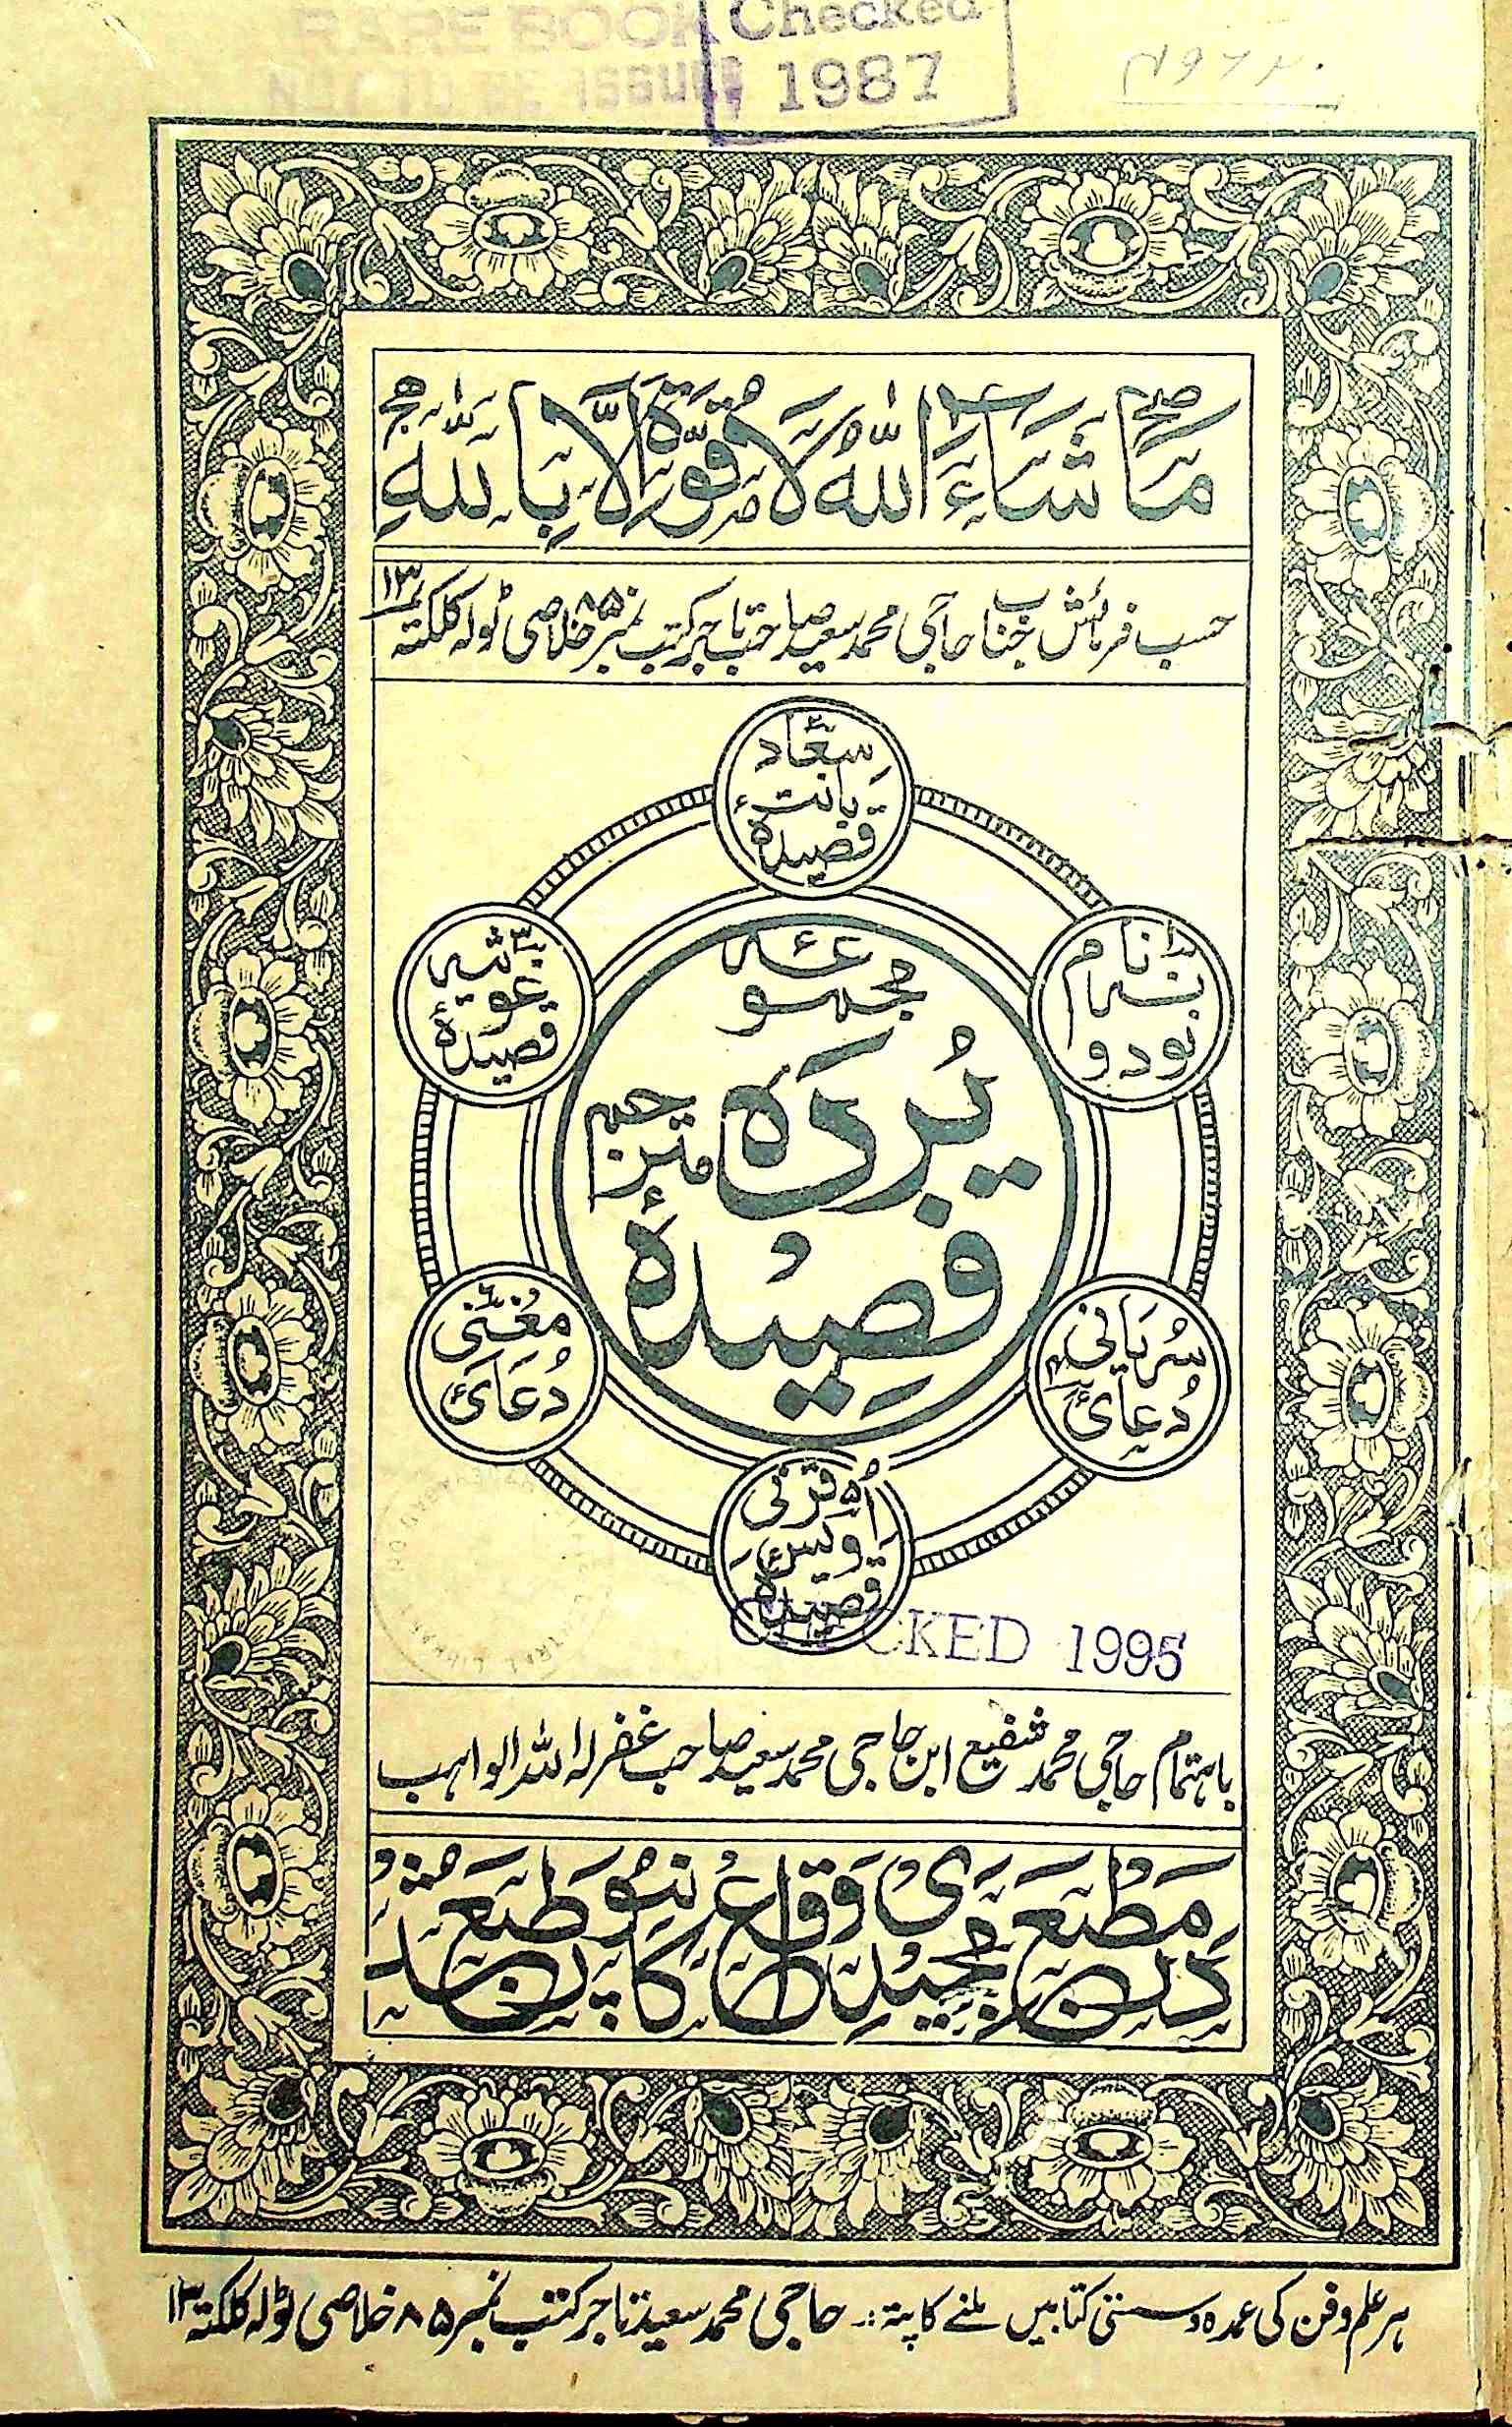 RARE BOOK
NOT TO BE ISSUED
Checked
1987
مَا شَاءَ اللّٰهُ لَا قُوَّةَ اِلَّا بِاللّٰهِ
حسب فرمائش جناب حاجی محمد سعید صاحب تاجر کتب نمبر ۸۵ خلاصی ٹولہ کلکتہ ۱۳
قصیدۂ بانت سعاد
نود و نہ نام
قصیدۂ غوثیہ
مجموعۂ
قصیدۂ بُردَہ
مترجم
دُعائ سُریانی
دُعائ مُغنی
قصیدۂ اویس قرنی
CHECKED 1995
باہتمام حاجی محمد شفیع ابن حاجی محمد سعید صاحب غفر لہ اللہ الواہب
در مطبع مجیدی واقع کانپور طبع شد
ہر علم و فن کی عمدہ و سستی کتابیں ملنے کا پتہ :۔ حاجی محمد سعید تاجر کتب نمبر ۸۵ خلاصی ٹولہ کلکتہ ۱۳